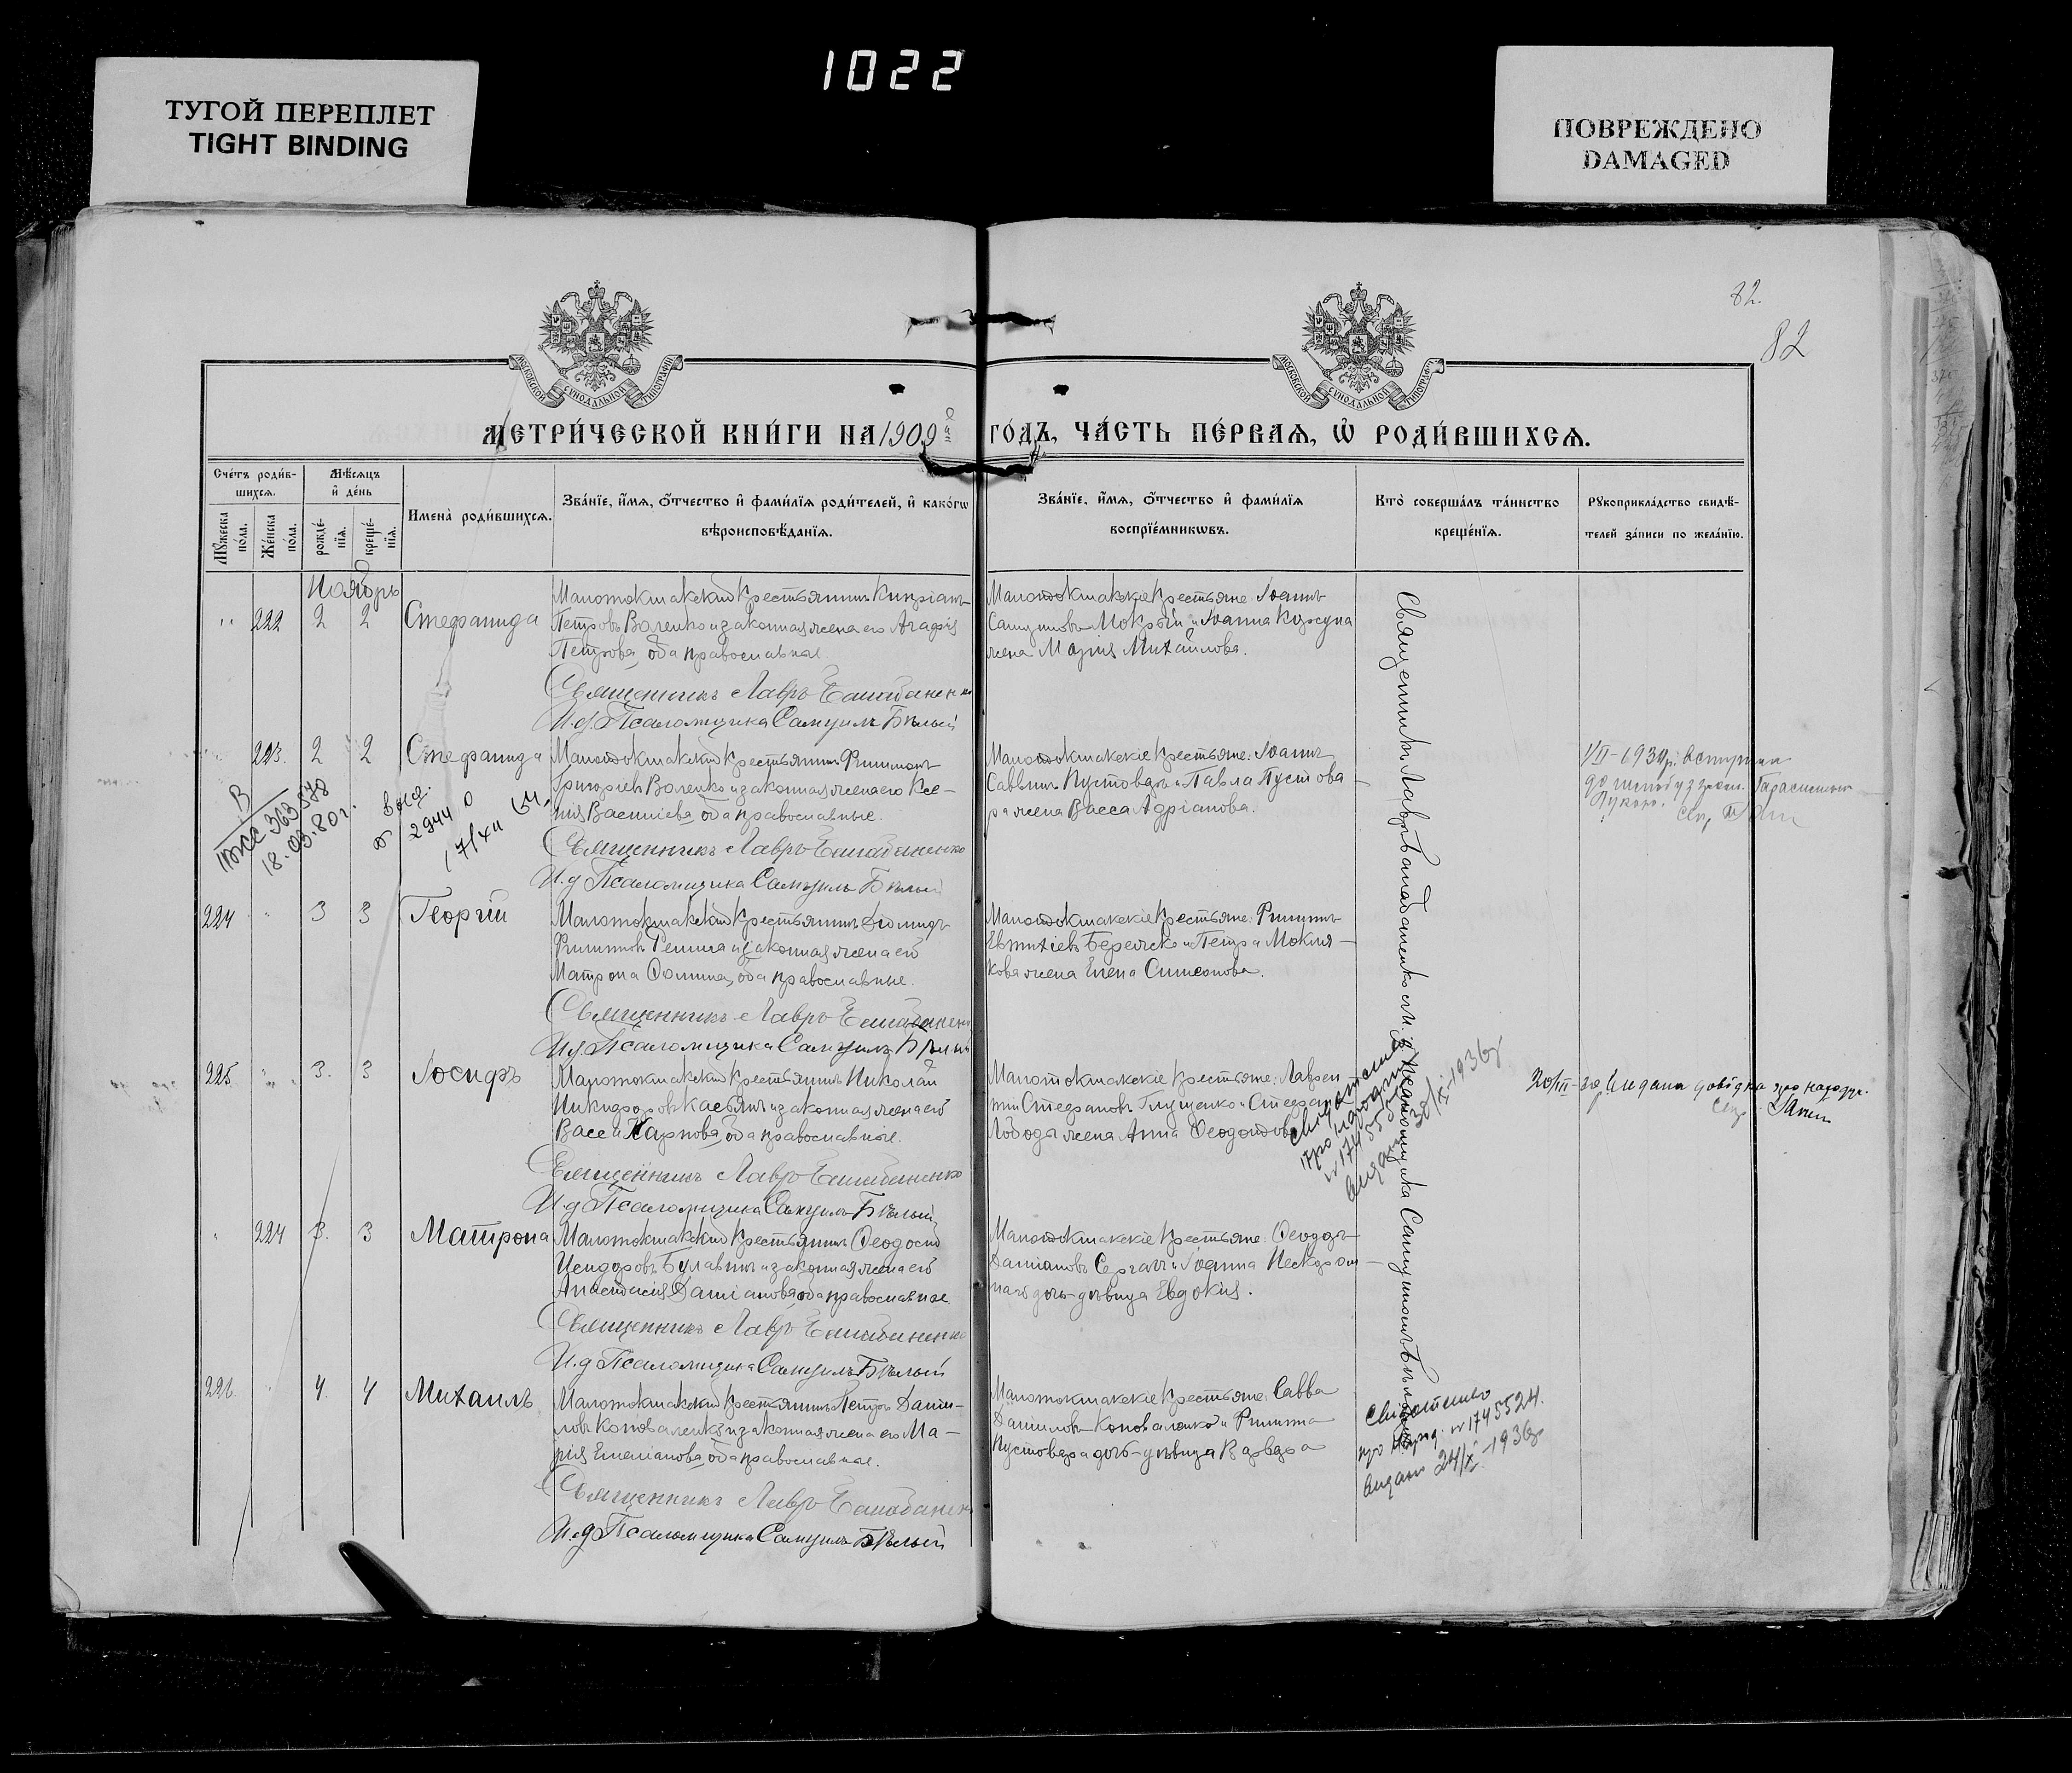 1022
ТУГОЙ ПЕРЕПЛЕТ
TIGHT BINDING
ПОВРЕЖДЕНО
DAMAGED
82.
82
МОСКОВСКОЙ СѴНОДАЛЬНОЙ ТИПОГРАФІИ
МОСКОВСКОЙ СѴНОДАЛЬНОЙ ТИПОГРАФІИ
МЕТРИ́ЧЕСКОЙ КНИ́ГИ НА 1909 ГО́ДЪ, ЧА́СТЬ ПЕ́РВАѦ, Ѡ҆ РОДИ́ВШИХСѦ.
Сче́тъ роди́вшихсѧ.
Мѣ́сѧцъ и҆ де́нь
Мꙋ́жеска по́ла.
Же́нска по́ла.
рожде́нїѧ.
креще́нїѧ.
И҆мена̀ роди́вшихсѧ.
Зва́нїе, и҆́мѧ, ѻ҆́тчество и҆ фами́лїѧ роди́телей, и҆ како́гѡ
вѣроисповѣ́данїѧ.
Зва́нїе, и҆́мѧ, ѻ҆́тчество и҆ фами́лїѧ
воспрїе́мникѡвъ.
Кто̀ соверша́лъ та́инство
креще́нїѧ.
Рꙋкоприкла́дство свидѣ́-
телей за́писи по жела́нїю.
Ноябрь
222 2 2 Стефанида
Малотокмакскій крестьянинъ Кипріанъ
Петровъ Воленко и законная жена его Агафія
Петрова, оба православные.
Священникъ Лавръ Балабаненко
И.д. Псаломщика Самуилъ Бѣлый
Малотокмакскіе крестьяне: Іоаннъ
Самуиловъ Мокрый и Іоанна Кожуна
жена Марія Михайлова.
Священникъ Лавръ Балабаненко съ и. д. Псаломщика Самуиломъ Бѣлымъ
223. 2 2 Стефанида
Малотокмакскій крестьянинъ Филимонъ
Григоріевъ Воленко и законная жена его Ксе-
нія Василіева, оба православные.
Священникъ Лавръ Балабаненко
И.д. Псаломщика Самуилъ Бѣлый
Малотокмакскіе крестьяне: Іоаннъ
Саввинъ Пустоваръ и Павла Пустова-
ра жена Васса Адріанова.
363578
18.03.80 г.
выд.
2944
17/XII
224 3 3 Георгій
Малотокмакскій крестьянинъ Діомидъ
Филиповъ Репила и законная жена его
Матрона Ѳомина, оба православные.
Священникъ Лавръ Балабаненко
И.д. Псаломщика Самуилъ Бѣлый
Малотокмакскіе крестьяне: Филиппъ
Евтихіевъ Бережко и Петра Мокля-
кова жена Елена Симеонова.
225 3. 3 Іосифъ
Малотокмакскій крестьянинъ Николай
Никифоровъ Касьянъ и законная жена его
Васса Карпова, оба православные.
Священникъ Лавръ Балабаненко
И.д. Псаломщика Самуилъ Бѣлый
Малотокмакскіе крестьяне: Лаврен-
тій Стефановъ Глущенко и Стефана
Лободы жена Анна Ѳеодотова.
Свідоцтво
про народж.
видано 30/XI-1936р
видана довідка про народж.
224 3. 3 Матрона
Малотокмакскій крестьянинъ Ѳеодосій
Исидоровъ Булавинъ и законная жена его
Анастасія Даміанова, оба православные
Священникъ Лавръ Балабаненко
И.д. Псаломщика Самуилъ Бѣлый
Малотокмакскіе крестьяне: Ѳеодоръ
Даміановъ Сергачъ и Іоанна
дочь-дѣвица Евдокія.
226. 4. 4 Михаилъ
Малотокмакскій крестьянинъ Петръ Дании-
ловъ Коноваленко и законная жена его Ма-
рія Емеліанова, оба православные.
Священникъ Лавръ Балабаненко
И.д. Псаломщика Самуилъ Бѣлый
Малотокмакскіе крестьяне: Савва
Данииловъ Коноваленко и Филиппа
Пустовара дочь-дѣвица Варвара
Свідоцтво
про народ. № 1745524.
видано 24/X-1936р